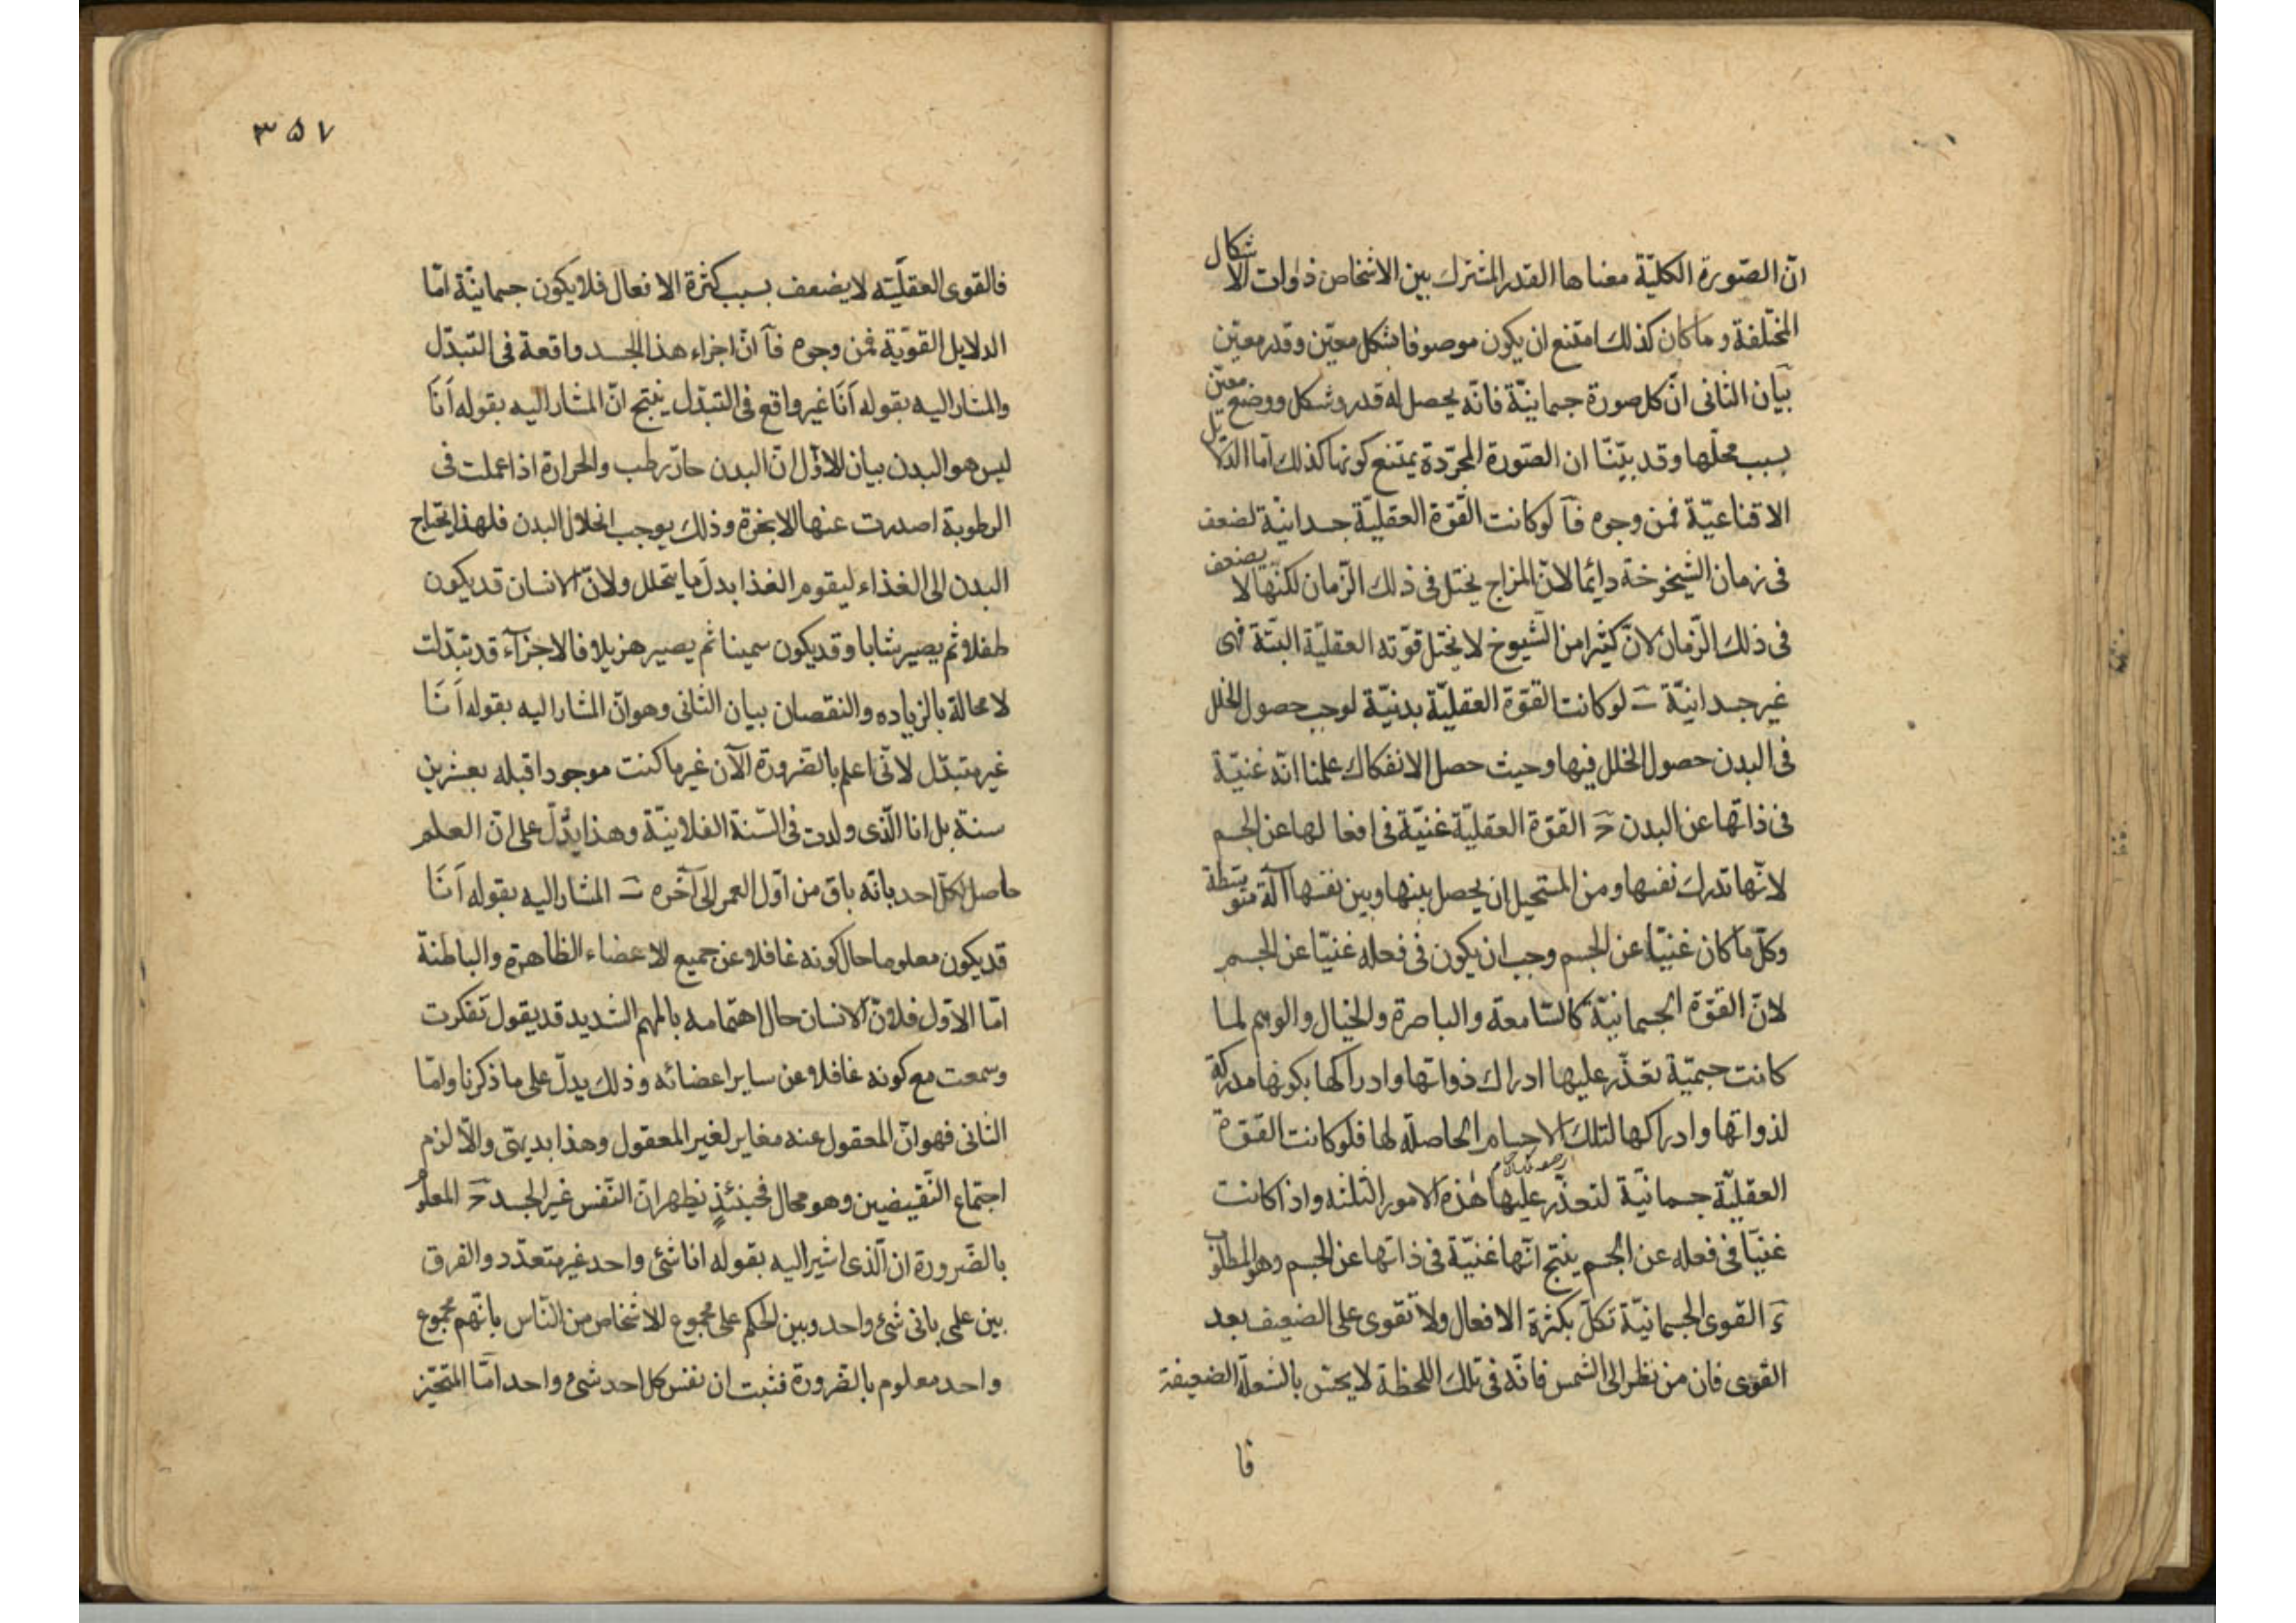 انّ الصّورة الكليّة معناها القدر المشترك بين الاشخاص ذوات الاشكال
المختلفة وما كان كذلك امتنع ان يكون موصوفا بشكل معيّن وقدر معيّن
بيان الثانى انّ كل صورة جسمانيّة فانّه يحصل له قدر وشكل ووضع معيّن
بسبب محلّها وقد بيّنّا ان الصّورة المجرّدة يمتنع كونها كذلك امّا الدلايل
الاقناعيّة فمن وجوه آ لو كانت القوّة العقليّة جسدانيّة لضعف
فى زمان الشيخوخة دايما لانّ المزاج يختل فى ذلك الزّمان لكنّها لا يضعف
فى ذلك الزّمان لانّ كثيرا من الشيوخ لا يختل قوّته العقليّة البتّة فهى
غير جسدانيّة ب لو كانت القوّة العقليّة بدنيّة لوجب حصول الخلل
فى البدن حصول الخلل فيها وحيث حصل الانفكاك علمنا انّه غنيّة
فى ذاتها عن البدن ج القوّة العقليّة غنيّة فى افعالها عن الجسم
لانّها تدرك نفسها ومن المستحيل ان يحصل بينها وبين نفسها آلة متوسّطة
وكلّ ما كان غنيّا عن الجسم وجب ان يكون فى فعله غنيّا عن الجسم
لانّ القوّة الجسمانيّة كالسّامعة والباصرة والخيال والوهم لما
كانت جسميّة تعذّر عليها ادراك ذواتها وادراكها بكونها مدركة
لذواتها وادراكها لتلك الاجسام الحاصلة لها فلو كانت القوّة
العقليّة جسمانيّة لتعذّر عليها هذه الامور الثلثه واذا كانت
غنيّا فى فعله عن الجسم ينتج انّها غنيّة فى ذاتها عن الجسم وهو المطلوب
ء القوى الجسمانيّة تكلّ بكثرة الافعال ولا تقوى على الضعيف بعد
القوى فان من نظر الى الشمس فانّه فى تلك اللحظة لا يحسّ بالشعلة الضعيفة
فا
٣٥٧
فالقوى العقليّة لا يضعف بسبب كثرة الافعال فلا يكون جسمانيّة امّا
الدلايل القويّة فمن وجوه فآ انّ اجزاء هذا الجسد واقعة فى التبدّل
والمشار اليه بقوله اَنَا غير واقع فى التبدّل ينتج انّ المشار اليه بقوله اَنَا
ليس هو البدن بيان الاوّل انّ البدن حارّ رطب والحرارة اذا عملت فى
الرطوبة اصدرت عنها الابخرة وذلك يوجب انحلال البدن فلهذا يحتاج
البدن الى الغذاء ليقوم الغذا بدل ما يتحلل ولانّ الانسان قد يكون
طفلا ثم يصير شابا وقد يكون سمينا ثم يصير هزيلا فالاجزآء قد تبدّلت
لا محالة بالزياده والنقصان بيان الثانى وهو انّ المشار اليه بقوله اَنَا
غير متبدّل لانّى اعلم بالضرورة الآن غير ما كنت موجودا قبله بعشرين
سنة بل انا الّذى ولدت فى السّنة الفلانيّة وهذا يدّل على انّ العلم
حاصل لكل احد بانّه باق من اوّل العمر الى آخره ب المشار اليه بقوله اَنَا
قد يكون معلوما حال كونه غافلا عن جميع الاعضاء الظاهرة والباطنة
امّا الاوّل فلانّ الانسان حال اهتمامه بالمهم الشديد قد يقول تفكرت
وسمعت مع كونه غافلا عن ساير اعضائه وذلك يدلّ على ما ذكرنا وامّا
الثانى فهو انّ المعقول عنه مغاير لغير المعقول وهذا بديهىّ والّا لزم
اجتماع النّقيضين وهو محال فحينئذٍ يظهر انّ النّفس غير الجسد ج المعلوم
بالضّرورة ان الّذى اشير اليه بقوله انا شئ واحد غير متعدّد والفرق
بين علمى بانى شئ واحد وبين الحكم على مجموع الاشخاص من النّاس بانّهم مجموع
واحد معلوم بالضرورة فثبت ان نفس كل احد شئ واحد امّا المتحيّز